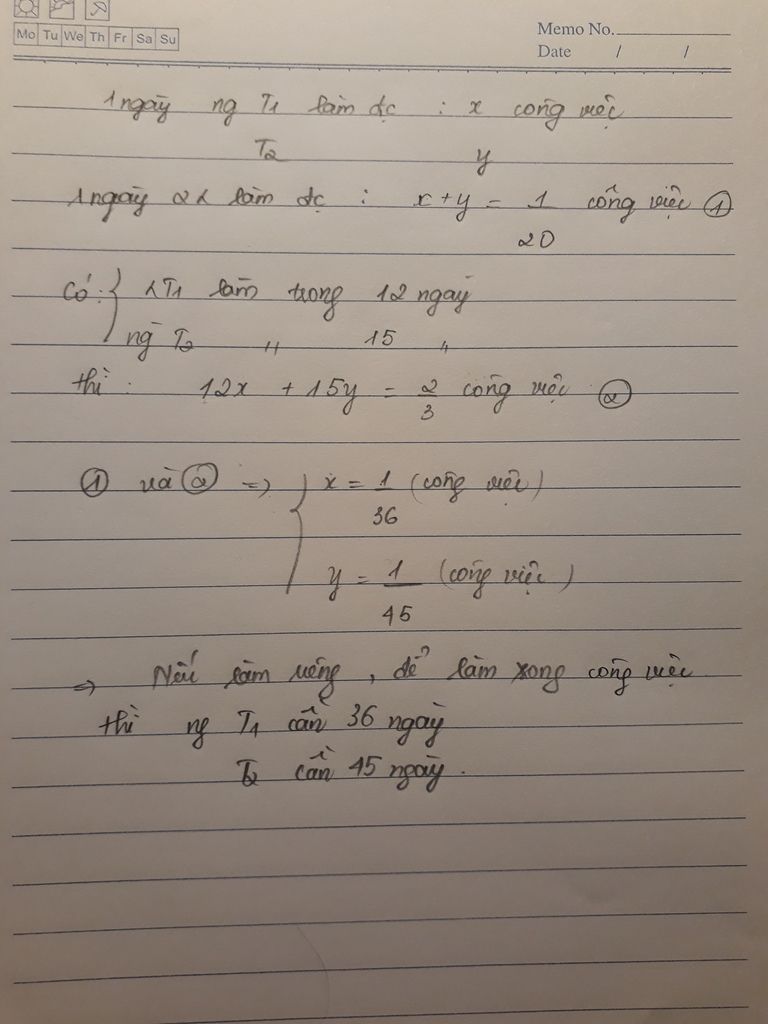 Mo Tu We Th Fr Sa Su
Memo No.
Date / /
1 ngày ng T1 làm đc : x công việc
T2 y
1 ngày 2 làm đc : x+y = 1/20 công việc ①
Có: { T1 làm trong 12 ngày
ng T2 " 15 "
thì: 12x + 15y = 2/3 công việc ②
① và ② => { x = 1/36 (công việc)
y = 1/45 (công việc)
=> Nếu làm riêng, để làm xong công việc
thì ng T1 cần 36 ngày
T2 cần 45 ngày.